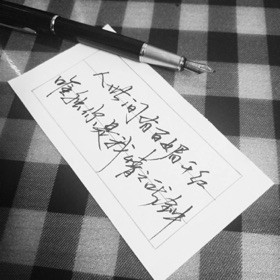 人世间有百媚千红
唯独你是我情之所钟